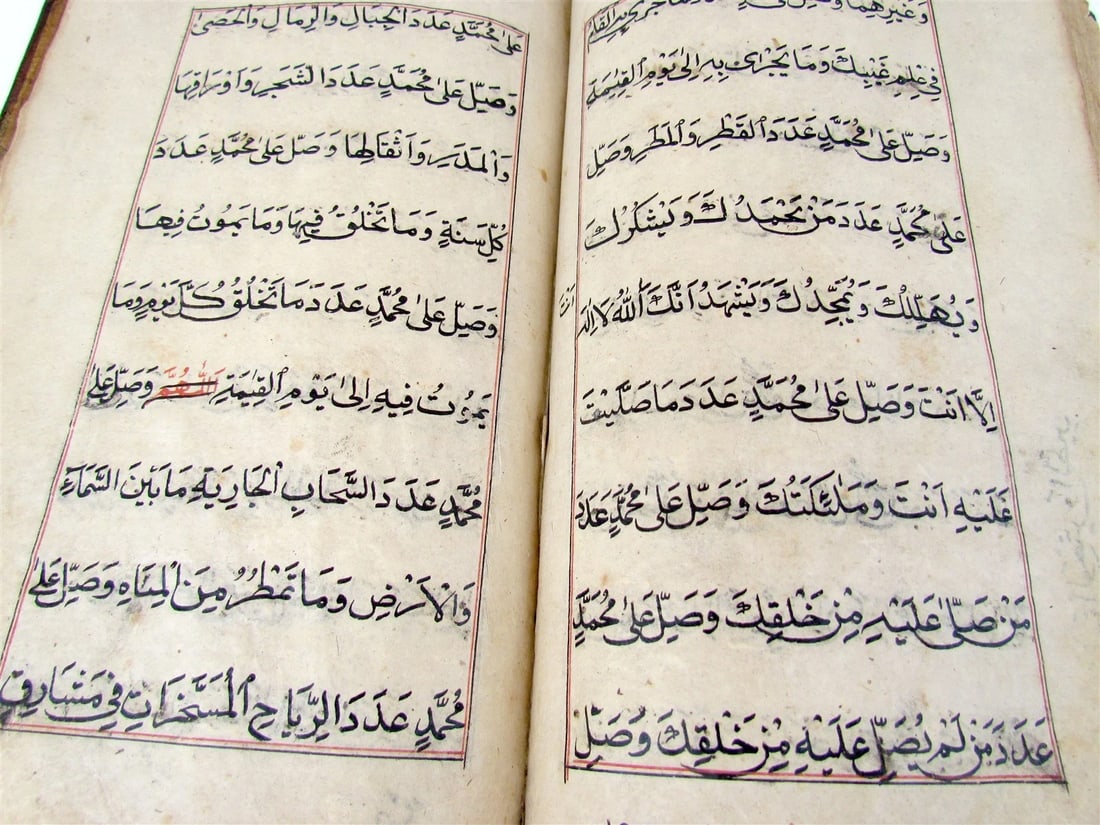 وَغَيْرِهِمَا وَصَلِّ
فِي عِلْمِ غَيْبِكَ وَمَا يَجْرِي بِهِ اِلٰى يَوْمِ الْقِيٰمَةِ
وَصَلِّ عَلٰى مُحَمَّدٍ عَدَدَ الْقَطْرِ وَالْمَطَرِ وَصَلِّ
عَلٰى مُحَمَّدٍ عَدَدَ مَنْ يَحْمَدُكَ وَيَشْكُرُكَ
وَيُهَلِّلُكَ وَيُمَجِّدُكَ وَيَشْهَدُ اَنَّكَ اَنْتَ اللّٰهُ لَا اِلٰهَ
اِلَّا اَنْتَ وَصَلِّ عَلٰى مُحَمَّدٍ عَدَدَ مَا صَلَّيْتَ
عَلَيْهِ اَنْتَ وَمَلٰئِكَتُكَ وَصَلِّ عَلٰى مُحَمَّدٍ عَدَدَ
مَنْ صَلّٰى عَلَيْهِ مِنْ خَلْقِكَ وَصَلِّ عَلٰى مُحَمَّدٍ
عَدَدَ مَنْ لَمْ يُصَلِّ عَلَيْهِ مِنْ خَلْقِكَ وَصَلِّ
عَلٰى مُحَمَّدٍ عَدَدَ الْجِبَالِ وَالرِّمَالِ وَالْحَصٰى
وَصَلِّ عَلٰى مُحَمَّدٍ عَدَدَ الشَّجَرِ وَاَوْرَاقِهَا
وَالْمَدَرِ وَاَثْقَالِهَا وَصَلِّ عَلٰى مُحَمَّدٍ عَدَدَ
كُلِّ سَنَةٍ وَمَا تَخْلُقُ فِيهَا وَمَا يَمُوتُ فِيهَا
وَصَلِّ عَلٰى مُحَمَّدٍ عَدَدَ مَا تَخْلُقُ كُلَّ يَوْمٍ وَمَا
يَمُوتُ فِيهِ اِلٰى يَوْمِ الْقِيٰمَةِ اَللّٰهُمَّ وَصَلِّ عَلٰى
مُحَمَّدٍ عَدَدَ السَّحَابِ الْجَارِيَةِ مَا بَيْنَ السَّمَآءِ
وَالْاَرْضِ وَمَا تَمْطُرُ مِنَ الْمِيَاهِ وَصَلِّ عَلٰى
مُحَمَّدٍ عَدَدَ الرِّيَاحِ الْمُسَخَّرَاتِ فِي مَشَارِقِ